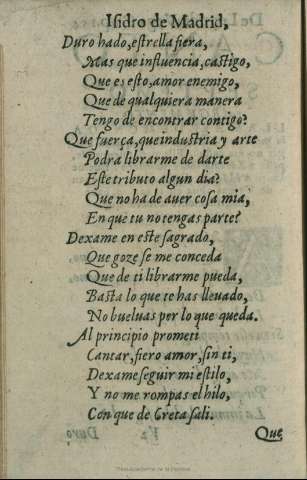 Isidro de Madrid,
Duro hado, estrella fiera,
Mas que influencia, castigo,
Que es esto, amor enemigo,
Que de qualquiera manera
Tengo de encontrar contigo?
Que fuerça, que industria y arte
Podra librarme de darte
Este tributo algun dia?
Que no ha de auer cosa mia,
En que tu no tengas parte?
Dexame en este sagrado,
Que goze se me conceda
Que de ti librarme pueda,
Basta lo que te has lleuado,
No bueluas por lo que queda.
Al principio prometi
Cantar, fiero amor, sin ti,
Dexame seguir mi estilo,
Y no me rompas el hilo,
Con que de Creta sali.
Que